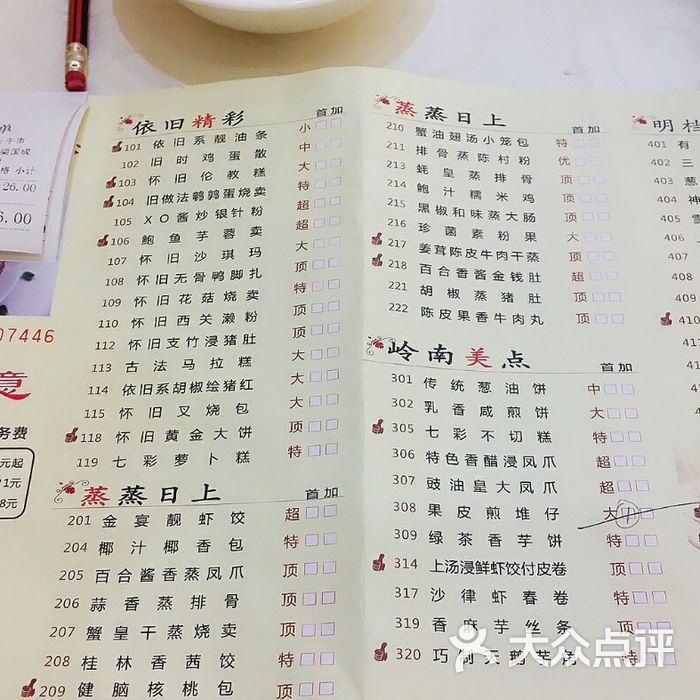 单
午市
梁国成
格 小计
26.00
6.00
07446
意
务费
元起
1元
8元
依旧精彩 首加
101 依旧系靓油条 小
102 旧时鸡蛋散 中
103 怀旧伦教糕 大
104 旧做法鹌鹑蛋烧卖 特
105 XO酱炒银针粉 超
106 鲍鱼芋蓉卖 超
107 怀旧沙琪玛 大
108 怀旧无骨鸭脚扎 顶
109 怀旧花菇烧卖 特
110 怀旧西关濑粉 顶
112 怀旧支竹浸猪肚 顶
113 古法马拉糕 大
114 依旧系胡椒绘猪红 大
115 怀旧叉烧包 大
118 怀旧黄金大饼 大
119 七彩萝卜糕 特
蒸蒸日上 首加
201 金宴靓虾饺 超
204 椰汁椰香包 特
205 百合酱香蒸凤爪 顶
206 蒜香蒸排骨 顶
207 蟹皇干蒸烧卖 顶
208 桂林香茜饺 特
209 健脑核桃包 顶
蒸蒸日上 首加
210 蟹油翅汤小笼包 特
211 排骨蒸陈村粉 优
213 蚝皇蒸排骨 顶
214 鲍汁糯米鸡 顶
215 黑椒和味蒸大肠 顶
216 珍菌素粉果 大
217 姜茸陈皮牛肉干蒸 顶
218 百合香酱金钱肚 超
221 胡椒蒸猪肚 顶
222 陈皮果香牛肉丸 顶
岭南美点 首加
301 传统葱油饼 中
302 乳香咸煎饼 大
305 七彩不切糕 特
306 特色香醋浸凤爪 超
307 豉油皇大凤爪 超
308 果皮煎堆仔 大
309 绿茶香芋饼 特
314 上汤浸鲜虾饺付皮卷 顶
317 沙律虾春卷 特
319 香麻芋丝条 顶
320 巧制天鹅芋角 顶
明档
401 有
403 三
403 葱
404 神
405 雪
410
411
417
大众点评